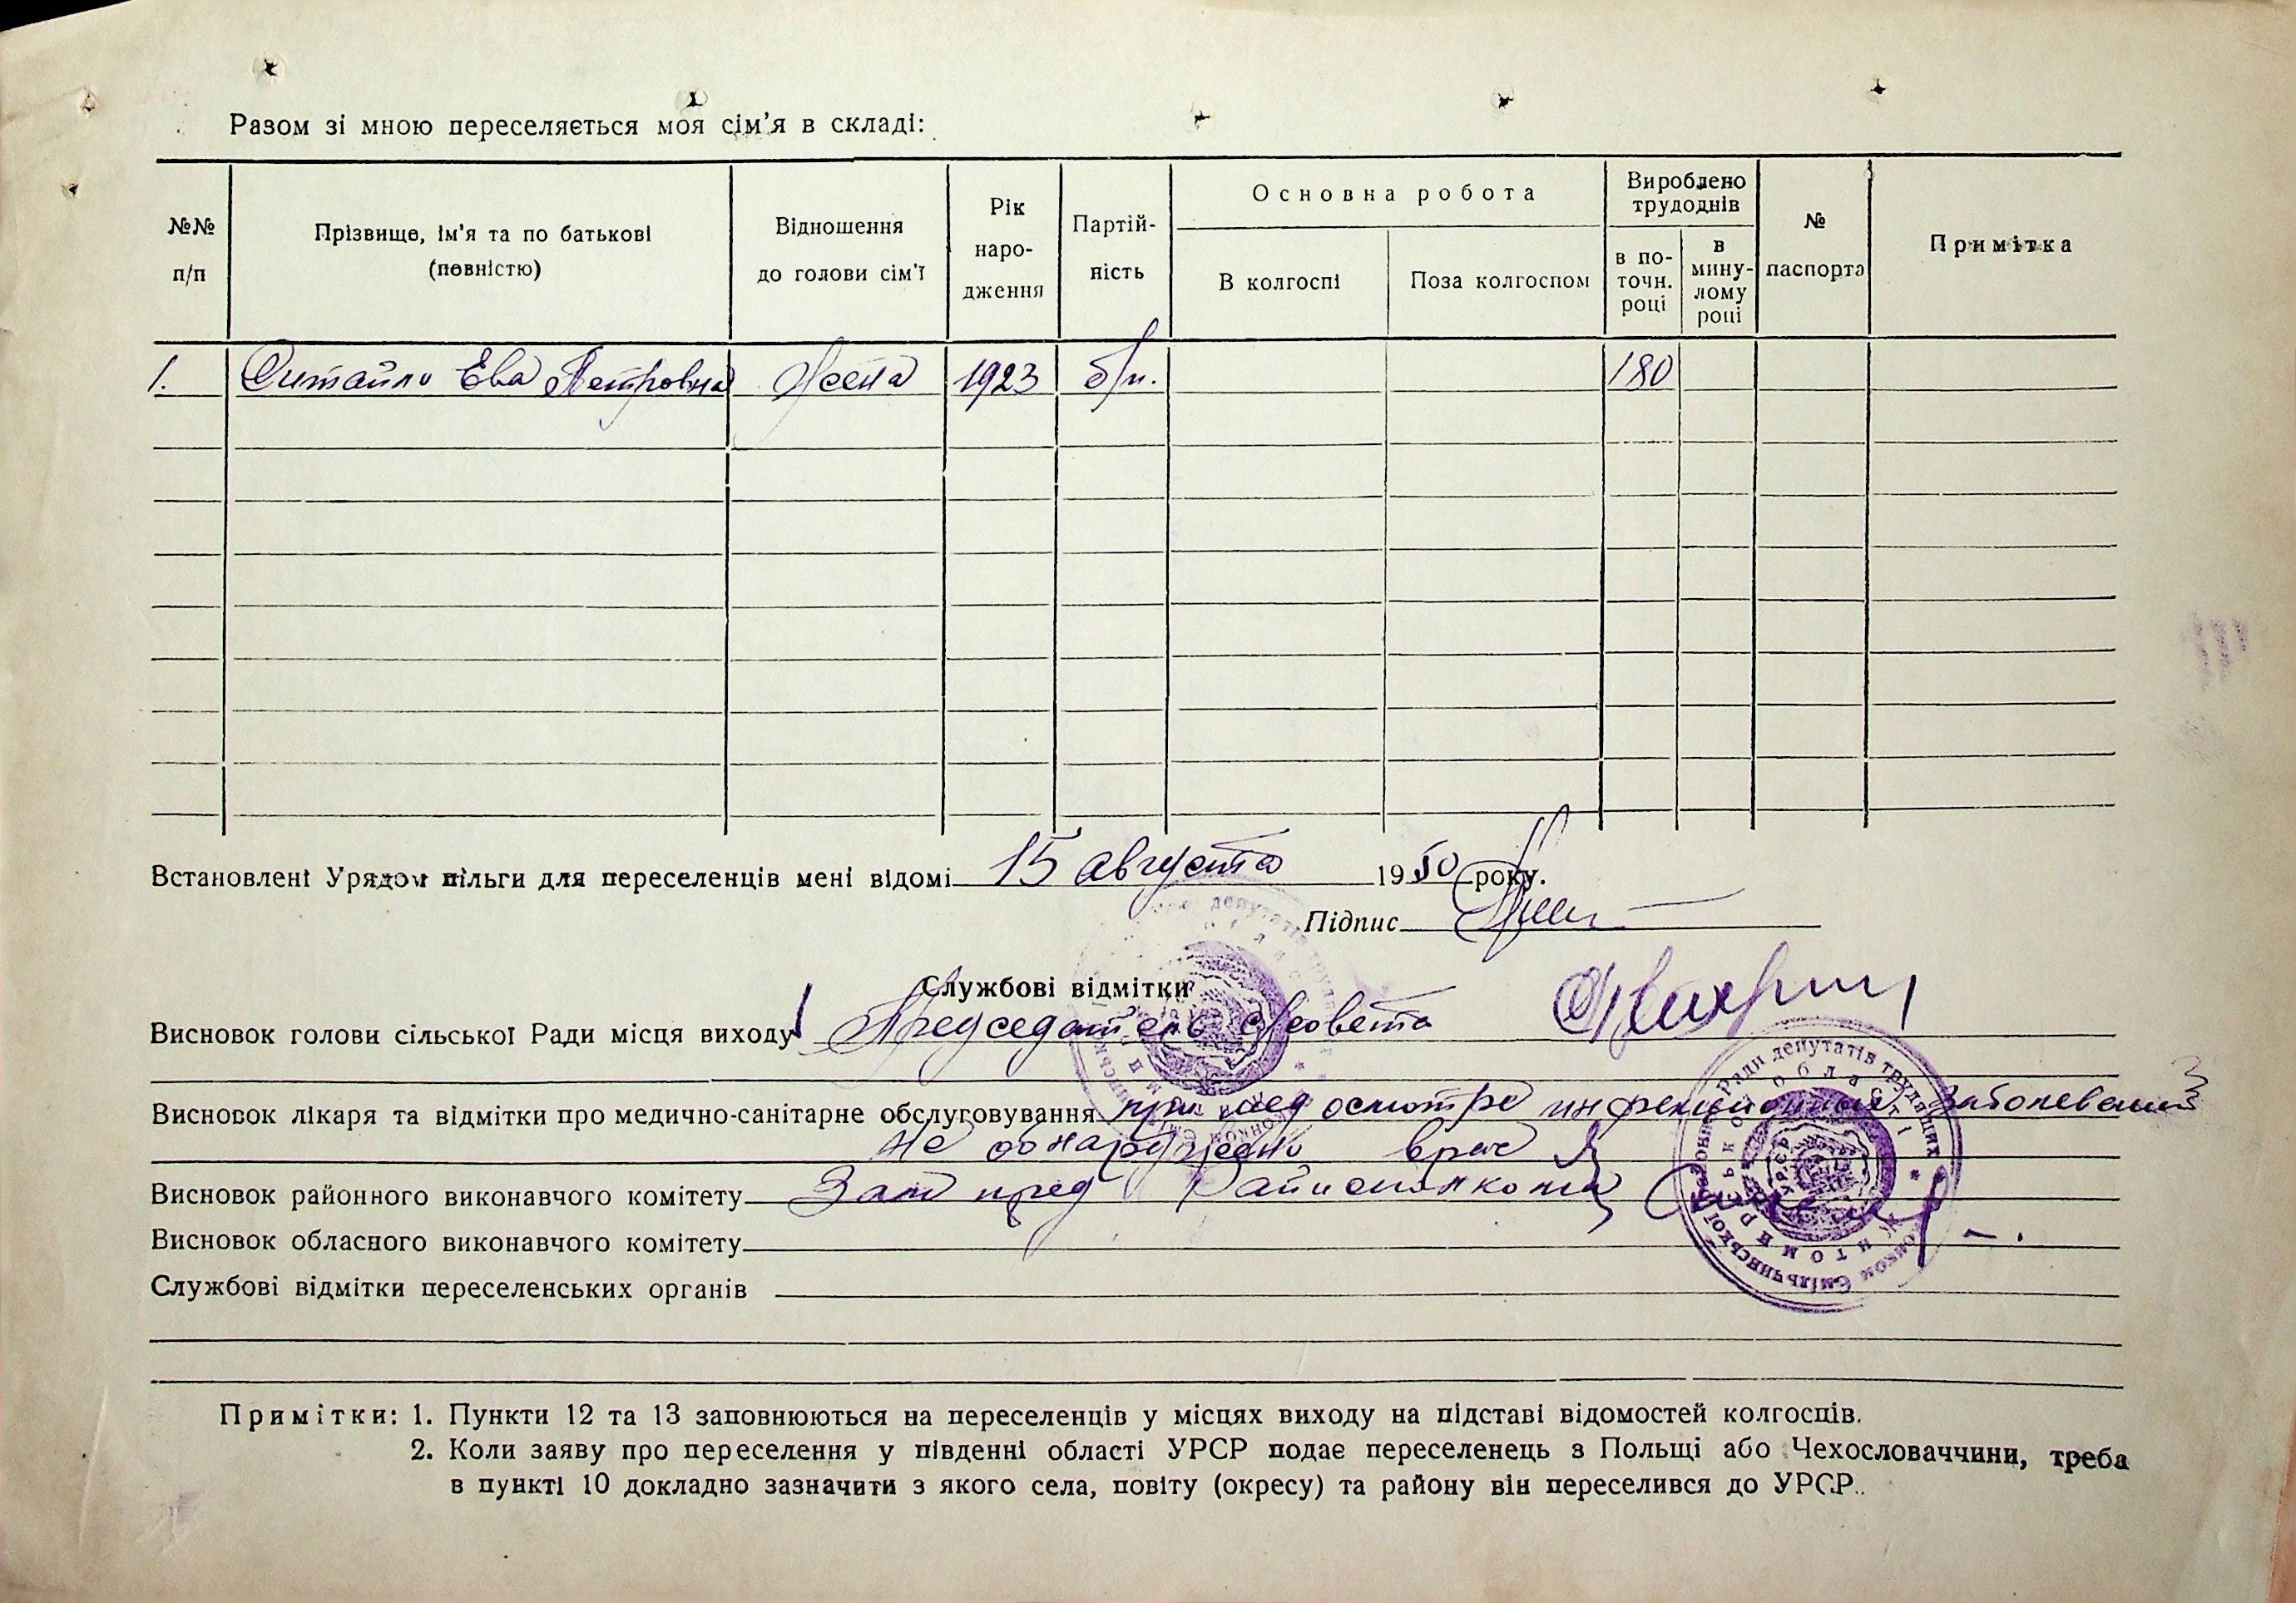 Разом зі мною переселяється моя сім'я в складі:
№№ п/п
Прізвище, ім'я та по батькові (повністю)
Відношення до голови сім'ї
Рік наро-дження
Партій-ність
Основна робота
В колгоспі
Поза колгоспом
Вироблено трудоднів
в по-точн. році
в мину-лому році
№ паспорта
Примітка
1. Ева Петровна жена 1923 б/п. 180
Встановлені Урядом пільги для переселенців мені відомі 15 августа 1950 року.
Підпис
Службові відмітки
Висновок голови сільської Ради місця виходу Председатель с/совета
Висновок лікаря та відмітки про медично-санітарне обслуговування при мед осмотре инфекционных заболеваний
не обнаружено врач
Висновок районного виконавчого комітету Зам пред Райисполкома
Висновок обласного виконавчого комітету
Службові відмітки переселенських органів
Примітки: 1. Пункти 12 та 13 заповнюються на переселенців у місцях виходу на підставі відомостей колгоспів.
2. Коли заяву про переселення у південні області УРСР подає переселенець з Польщі або Чехословаччини, треба
в пункті 10 докладно зазначити з якого села, повіту (окресу) та району він переселився до УРСР.